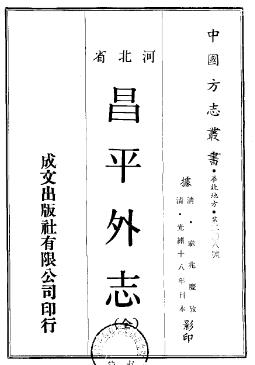 中國方志叢書・華北地方・第二〇八號
據
清・麻兆慶攷
清・光緒十八年刊本
影印
河北省
昌平外志(全)
成文出版社有限公司印行